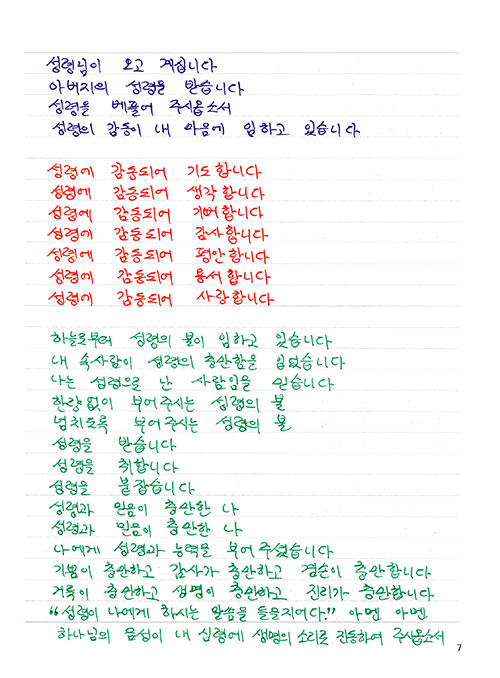 성령님이 오고 계십니다
아버지의 성령을 받습니다
성령을 베풀어 주시옵소서
성령의 감동이 내 마음에 임하고 있습니다
성령에 감동되어 기도합니다
성령에 감동되어 생각합니다
성령에 감동되어 기뻐합니다
성령에 감동되어 감사합니다
성령에 감동되어 평안합니다
성령에 감동되어 용서합니다
성령에 감동되어 사랑합니다
하늘로부터 성령의 불이 임하고 있습니다
내 속사람이 성령의 충만함을 입었습니다
나는 성령으로 난 사람임을 믿습니다
한량없이 부어주시는 성령의 불
넘치도록 부어주시는 성령의 불
성령을 받습니다
성령을 취합니다
성령을 붙잡습니다
성령과 믿음이 충만한 나
성령과 믿음이 충만한 나
나에게 성령과 능력을 부어 주셨습니다
기쁨이 충만하고 감사가 충만하고 겸손이 충만합니다
거룩이 충만하고 생명이 충만하고 진리가 충만합니다
"성령이 나에게 하시는 말씀을 들을지어다." 아멘 아멘
하나님의 음성이 내 심령에 생명의 소리로 진동하여 주시옵소서
7